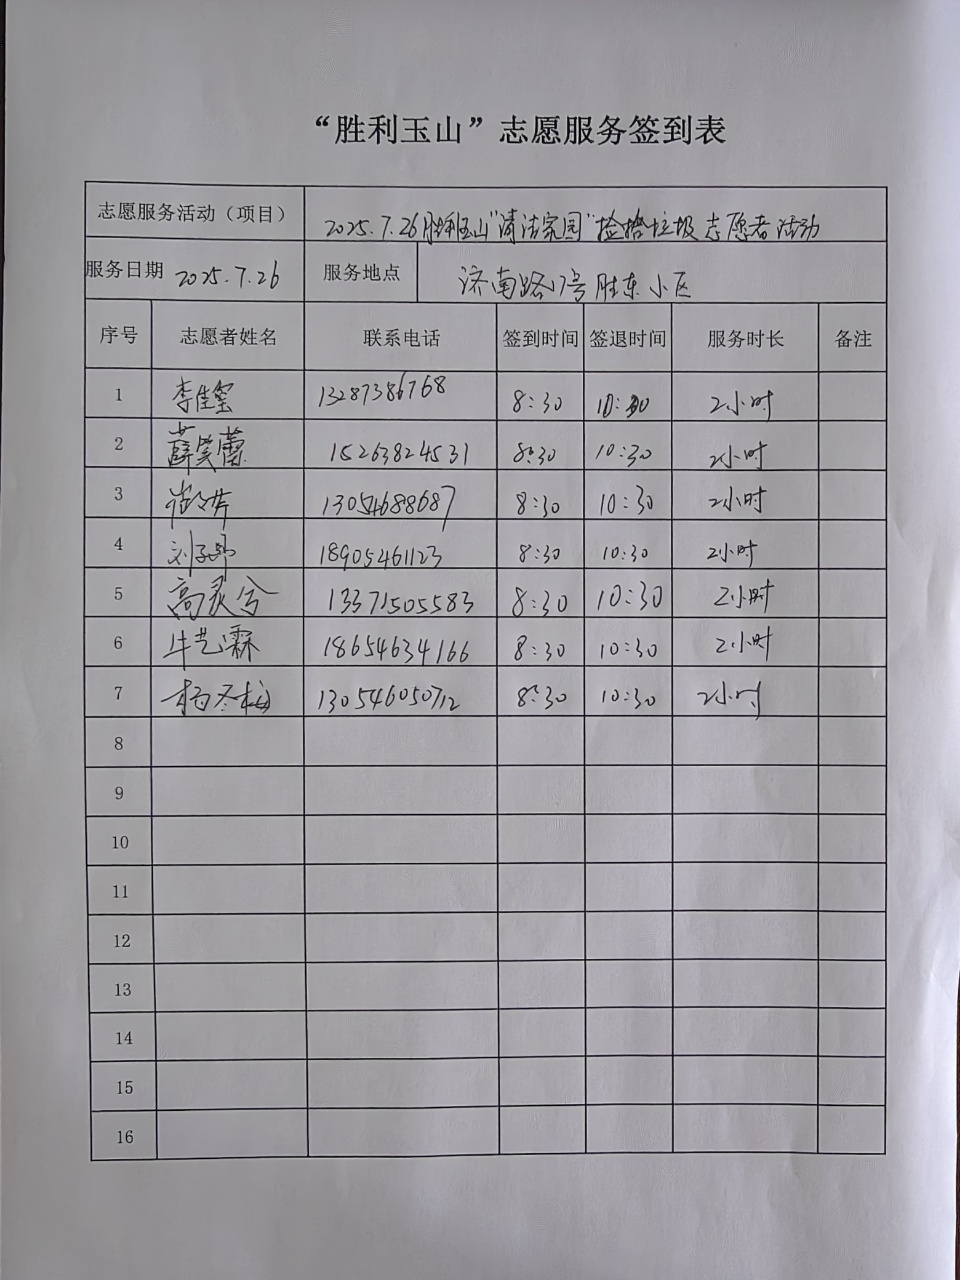 “胜利玉山”志愿服务签到表
志愿服务活动（项目） 2025.7.26胜利玉山“清洁家园”捡拾垃圾志愿者活动
服务日期 2025.7.26 服务地点 济南路17号胜东小区
序号 志愿者姓名 联系电话 签到时间 签退时间 服务时长 备注
1 李佳玺 13287386768 8:30 10:30 2小时
2 薛笑蕾 15263824531 8:30 10:30 2小时
3 13054688687 8:30 10:30 2小时
4 18905461123 8:30 10:30 2小时
5 高灵兮 13371505583 8:30 10:30 2小时
6 牛艺霖 18654634166 8:30 10:30 2小时
7 杨冬梅 13054605712 8:30 10:30 2小时
8
9
10
11
12
13
14
15
16